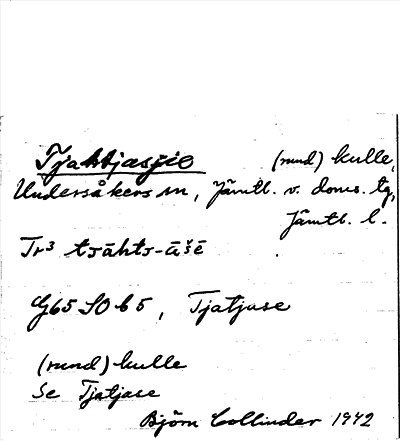 Tjahtjasjie (rund) kulle,
Undersåkers sn, Jämtl. v. doms. tg,
Jämtl. l.
Tr³ tsāhts-āšē
G65 SO b5, Tjatjase
(rund) kulle
Se Tjatjase
Björn Collinder 1942